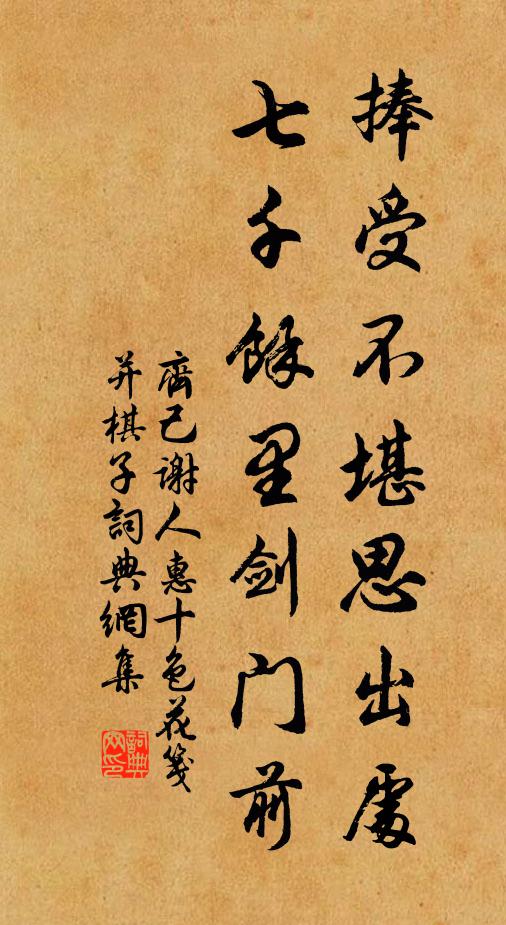 捧受不堪思出處
七千餘里劍门前
齊己谢人惠十色花箋
并棋子詞典網集
詞典
网印